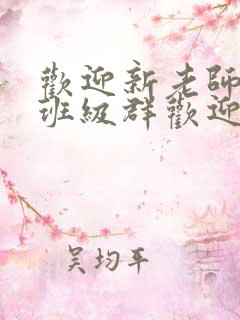 歡迎新老師
班級群歡迎
吴均平